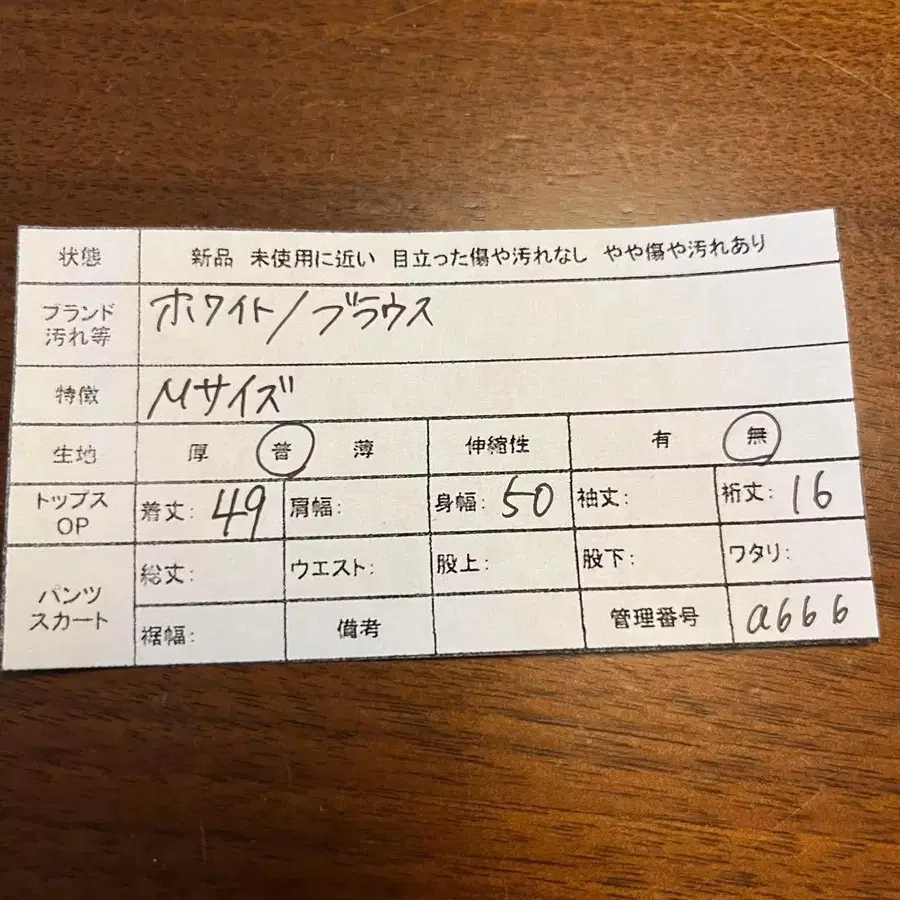 状態 新品 未使用に近い 目立った傷や汚れなし やや傷や汚れあり
ブランド ホワイト/ブラウス
汚れ等
特徴 Mサイズ
生地 厚 普 薄 伸縮性 有 無
トップス 着丈: 49 肩幅: 身幅: 50 袖丈: 裄丈: 16
OP
パンツ 総丈: ウエスト: 股上: 股下: ワタリ:
スカート 裾幅: 備考 管理番号 a666